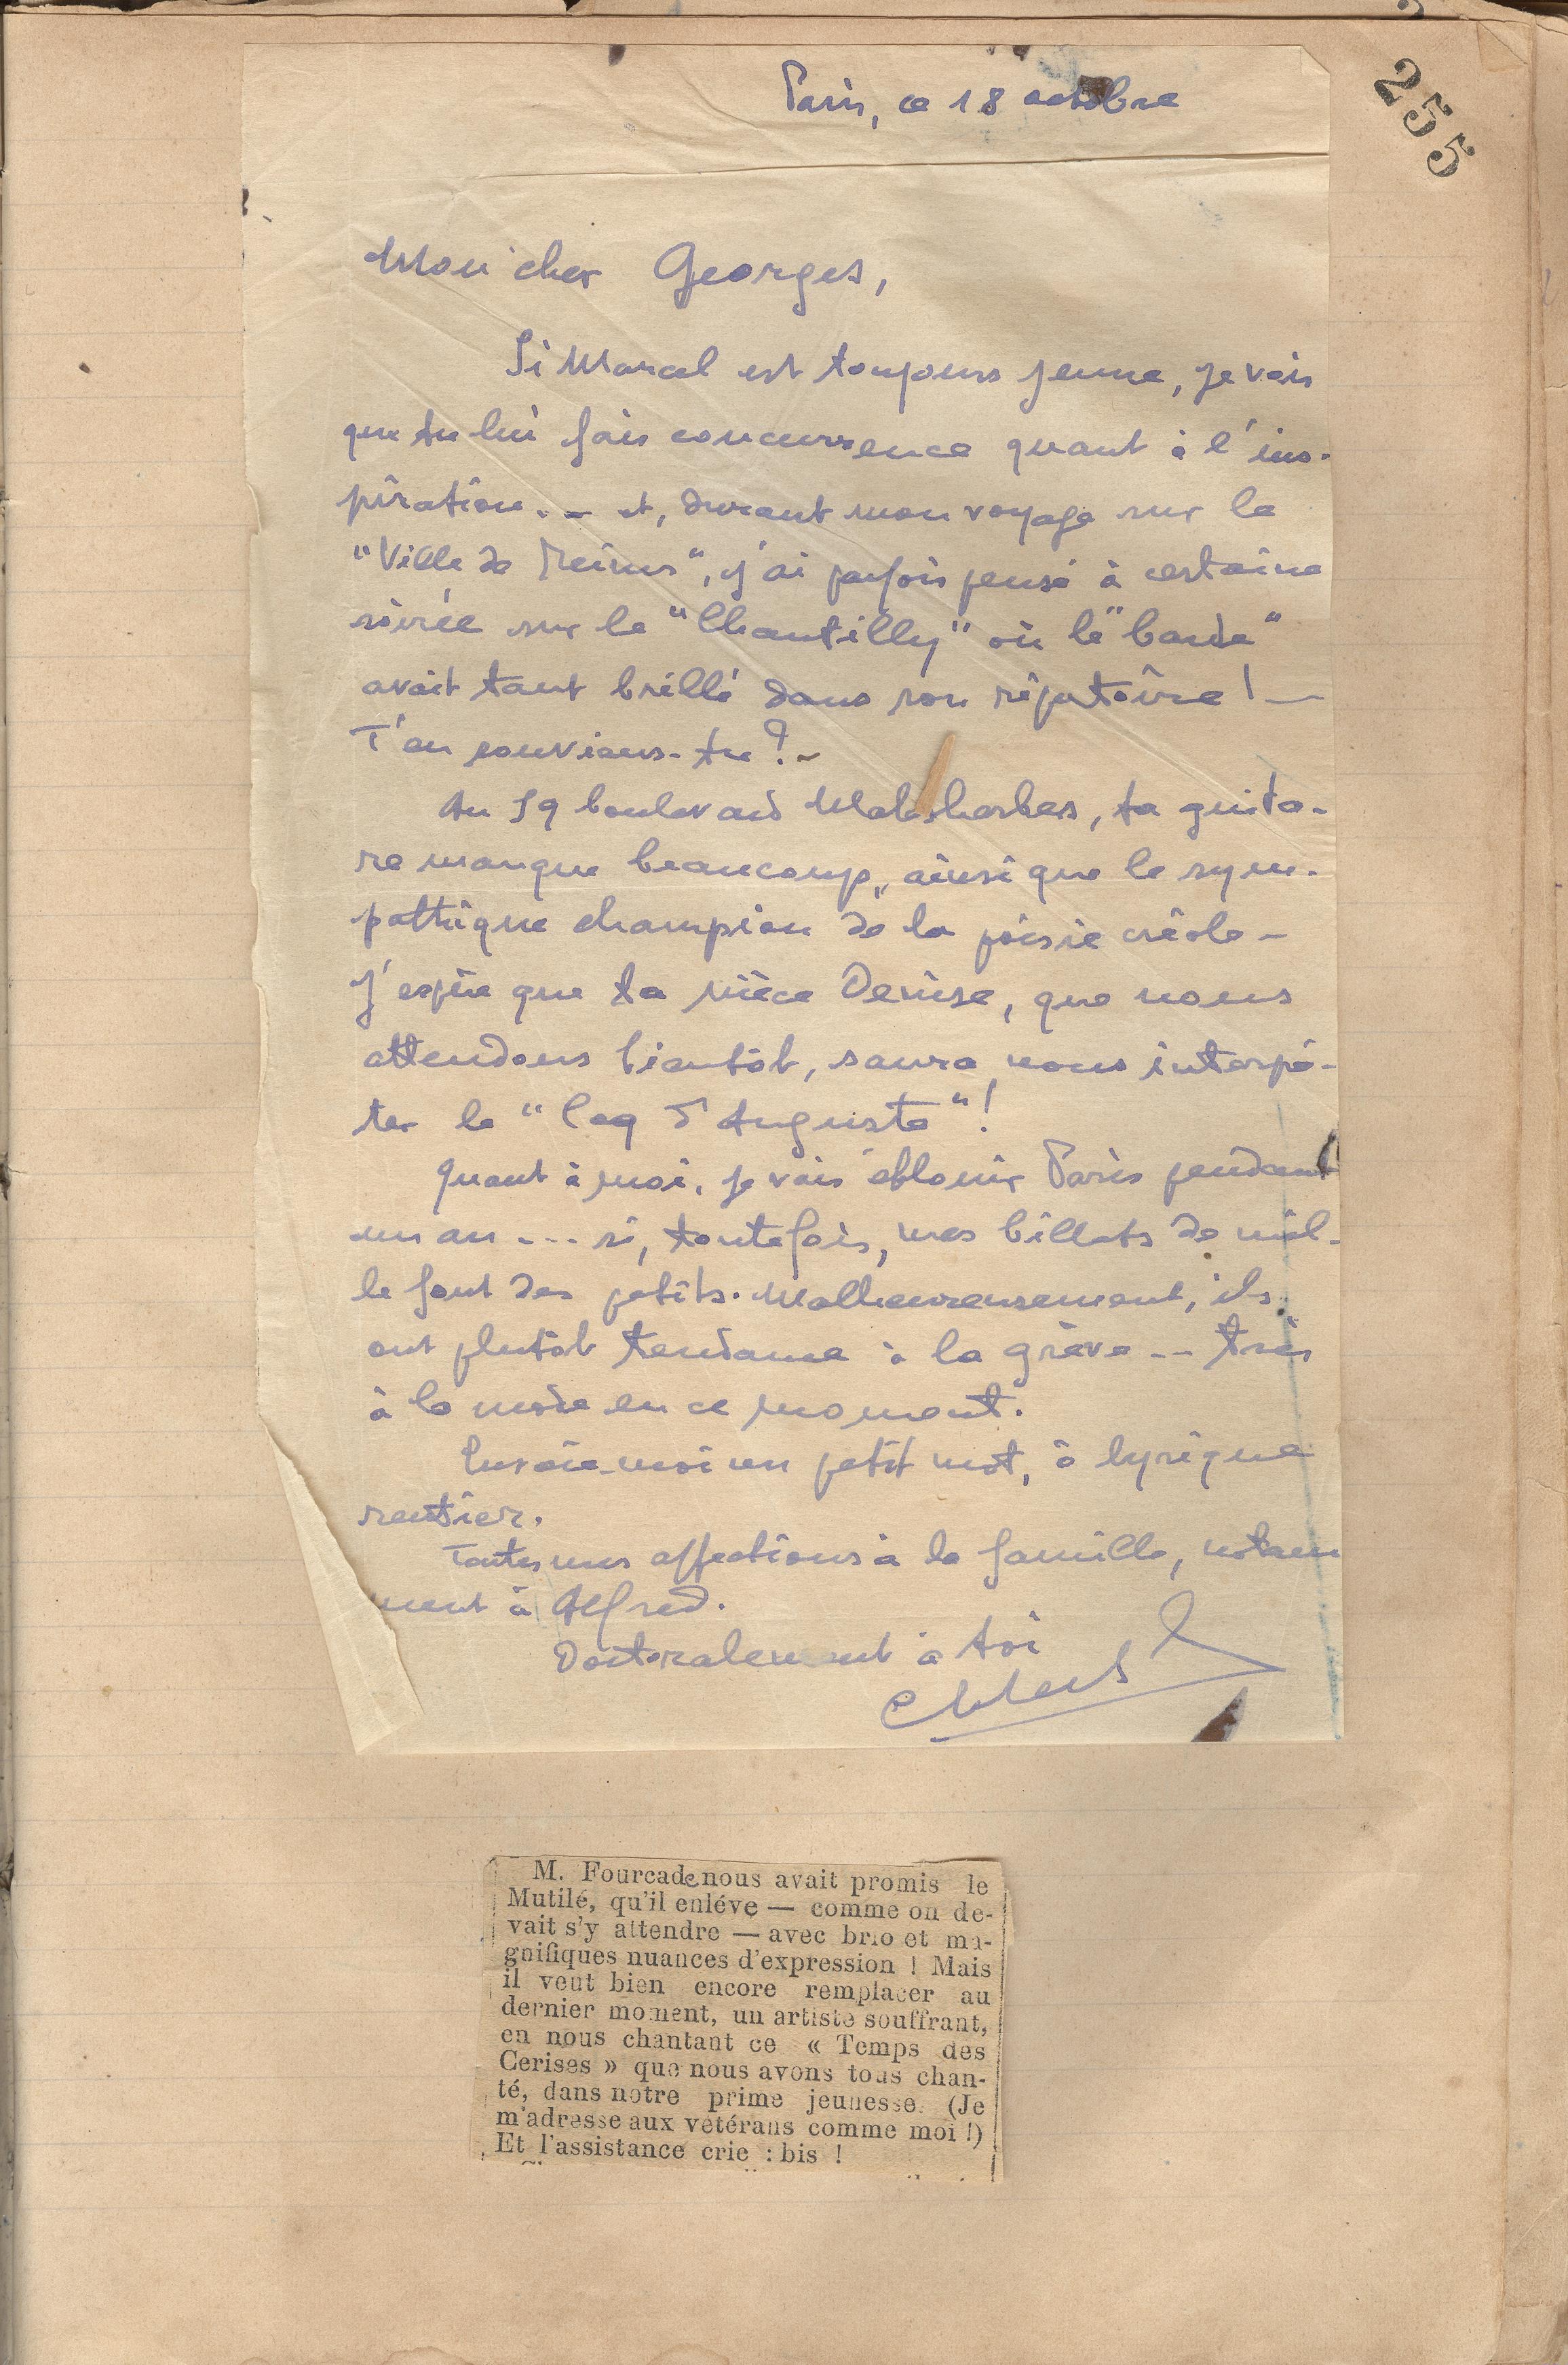 255
Paris, ce 18 octobre
Mon cher Georges,
Si Marcel est toujours jeune, je vois
que tu lui fais concurrence quant à l'ins-
piration... et, durant mon voyage sur le
"Ville de Reims", j'ai parfois pensé à certaine
soirée sur le "Chantilly" où le "barde"
avait tant brillé dans son répertoire! —
T'en souviens-tu? -
Au 59 boulevard Malesherbes, ta guita-
re manque beaucoup, ainsi que le sym-
pathique champion de la poésie créole -
J'espère que ta nièce Denise, que nous
attendons bientôt, saura nous interpré-
ter le "Coq d'Auguste"!
Quant à moi, je vais éblouir Paris pendant
un an ... si, toutefois, mes billets de mil-
le font des petits. Malheureusement, ils
ont plutôt tendance à la grève -- très
à la mode en ce moment.
Envoie-moi un petit mot, ô lyrique
rentier.
Toutes mes affections à la famille, notam
ment à Alfred.
Doctoralement à toi
M. Fourcade nous avait promis le
Mutilé, qu'il enléve — comme on de-
vait s'y attendre — avec brio et ma-
gnifiques nuances d'expression ! Mais
il veut bien encore remplacer au
dernier moment, un artiste souffrant,
en nous chantant ce « Temps des
Cerises » que nous avons tous chan-
té, dans notre prime jeunesse. (Je
m'adresse aux vétérans comme moi !)
Et l'assistance crie : bis !